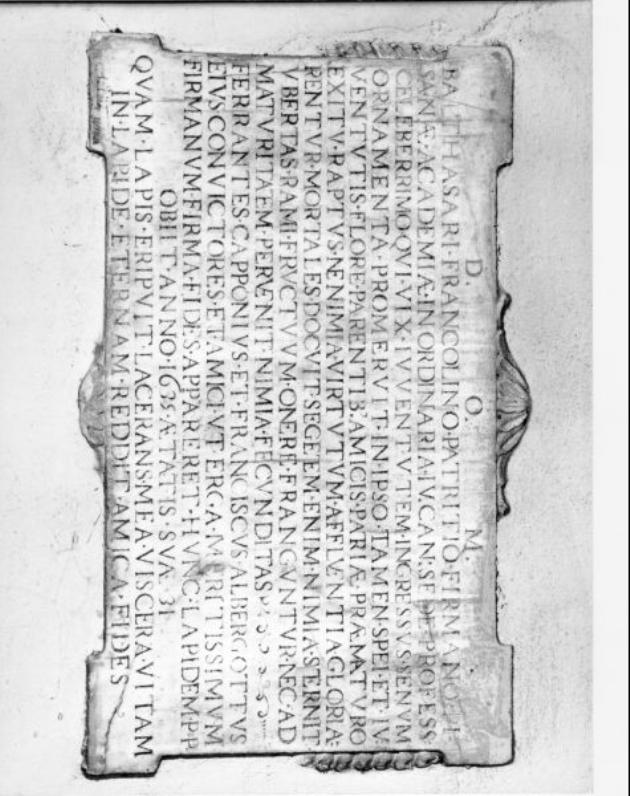 D. O. M.
BALTHASARI·FRANCOLINO·PATRITIO·FIRMANO·PI
SANÆ·ACADEMIÆ·IN·ORDINARIA·IV·CAN·SEDE·PROFESS
CELEBERRIMO·QVI·VIX·IVVENTVTEM·INGRESSVS·VENVM
ORNAMENTA·PROMERVIT·IN·IPSO·TAMEN·SPEI·ET·IV
VENTVTIS·FLORE·PARENTIB'·AMICIS·PATRIÆ·PRÆMATVRO
EXITV·RAPTVS·NE·NIMIA·VIRTVTVM·AFFLVENTIA·GLORIA
RENTVR·MORTALES·DOCVIT·SEGETEM·ENIM·NIMIA·STERNIT
VBERTAS·RAMI·FRVCTVVM·ONERE·FRANGVNTVR·NEC·AD
MATVRITAEM·PERVENIT·NIMIA·FECVNDITAS
FERRANTES·CAPPONIVS·ET·FRANCISCVS·ALBERGOTTVS
EIVS·CONVICTORES·ET·AMICI·VT·ERGA·MERITISSIMVM
FIRMANVM·FIRMA·FIDES·APPARERET·HVNC·LAPIDEM·P·P
OBIIT·ANNO·1635·ÆTATIS·SVÆ·31
QVAM·LAPIS·ERIPVIT·LACERANS·MEA·VISCERA·VITAM
IN·LAPIDE·ETERNAM·REDDIT·AMICA·FIDES